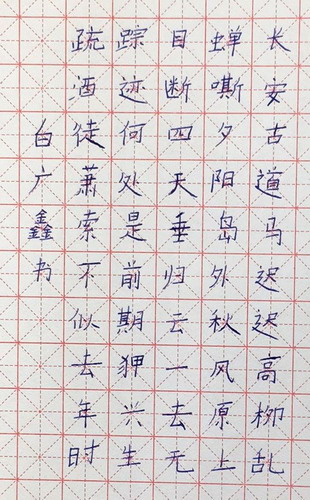 长安古道马迟迟高柳乱
蝉嘶夕阳岛外秋风原上
目断四天垂归云一去无
踪迹何处是前期狎兴生
疏酒徒萧索不似去年时
白广鑫书